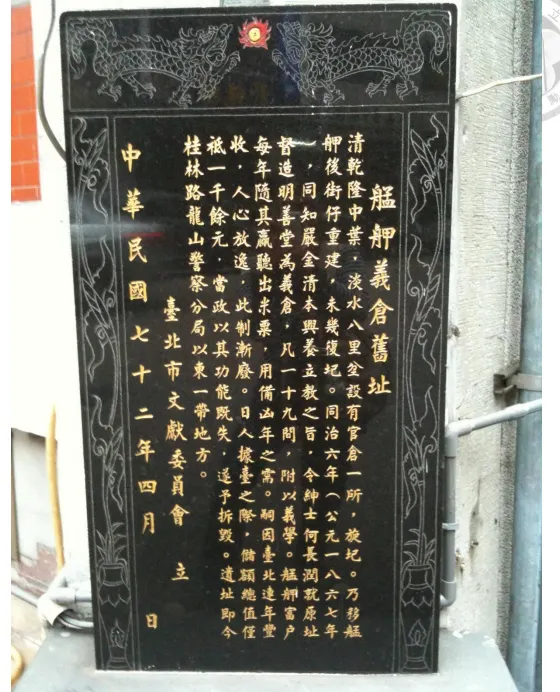 艋舺義倉舊址
清乾隆中葉，淡水八里坌設有官倉一所，旋圮。乃移艋
舺後街仔重建，未幾復圮。同治六年（公元一八六七年
），同知嚴金清本興養立教之旨，令紳士何長潤就原址
督造明善堂為義倉，凡一十九間，附以義學。艋舺富户
每年隨其贏聽出米粟，用備凶年之需。嗣因臺北連年豐
收，人心放逸，此制漸廢。日人據臺之際，儲額總值僅
祇一千餘元，當政以其功能既失，遂予拆毀。遺址即今
桂林路龍山警察分局以東一帶地方。
臺北市文獻委員會 立
中華民國七十二年四月 日